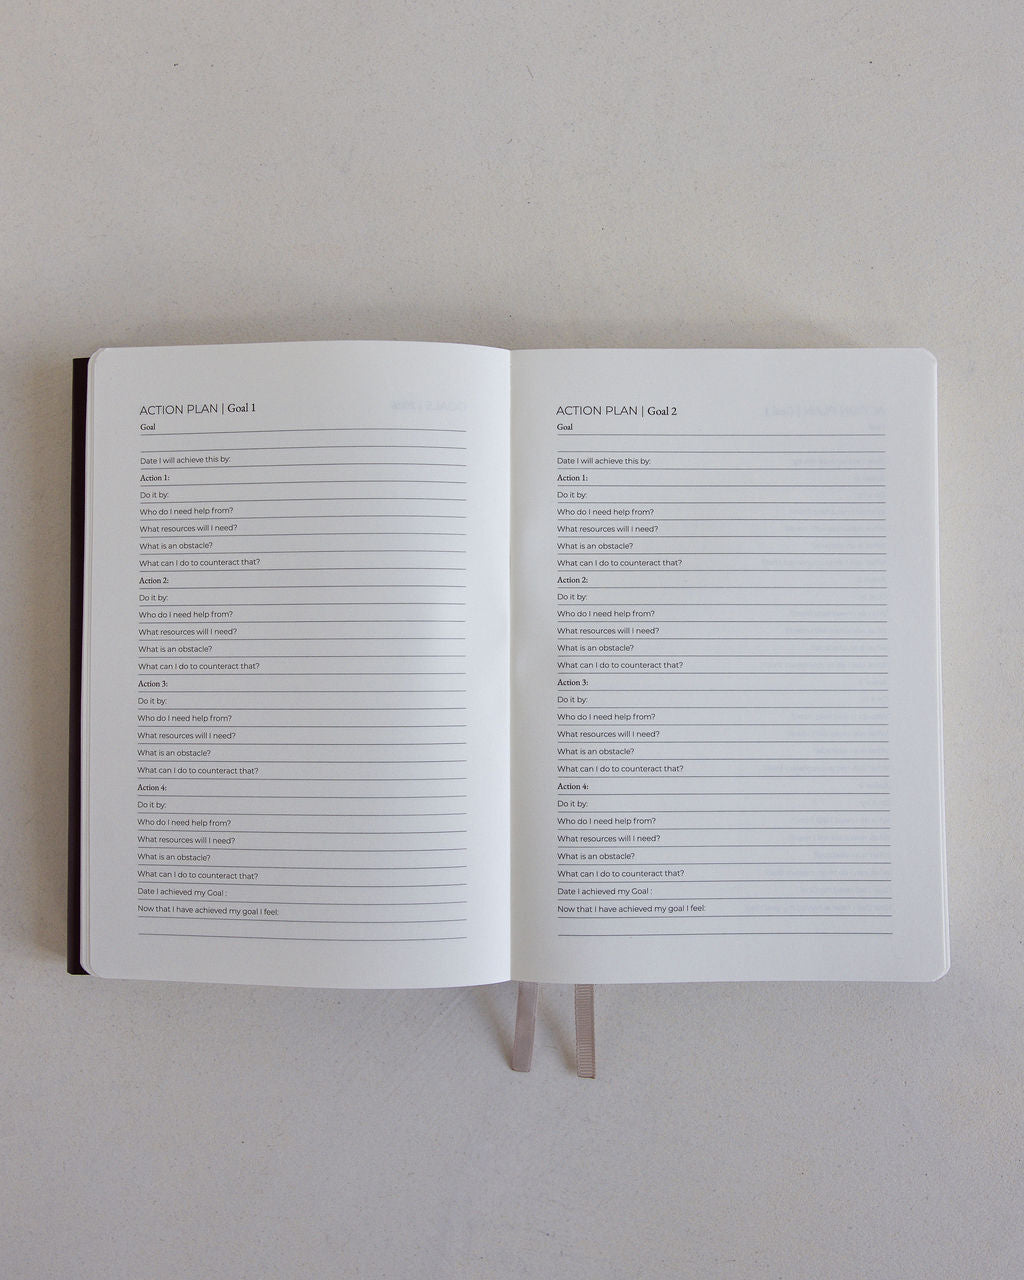 ACTION PLAN | Goal 1
Goal
Date I will achieve this by:
Action 1:
Do it by:
Who do I need help from?
What resources will I need?
What is an obstacle?
What can I do to counteract that?
Action 2:
Do it by:
Who do I need help from?
What resources will I need?
What is an obstacle?
What can I do to counteract that?
Action 3:
Do it by:
Who do I need help from?
What resources will I need?
What is an obstacle?
What can I do to counteract that?
Action 4:
Do it by:
Who do I need help from?
What resources will I need?
What is an obstacle?
What can I do to counteract that?
Date I achieved my Goal :
Now that I have achieved my goal I feel:
ACTION PLAN | Goal 2
Goal
Date I will achieve this by:
Action 1:
Do it by:
Who do I need help from?
What resources will I need?
What is an obstacle?
What can I do to counteract that?
Action 2:
Do it by:
Who do I need help from?
What resources will I need?
What is an obstacle?
What can I do to counteract that?
Action 3:
Do it by:
Who do I need help from?
What resources will I need?
What is an obstacle?
What can I do to counteract that?
Action 4:
Do it by:
Who do I need help from?
What resources will I need?
What is an obstacle?
What can I do to counteract that?
Date I achieved my Goal :
Now that I have achieved my goal I feel: